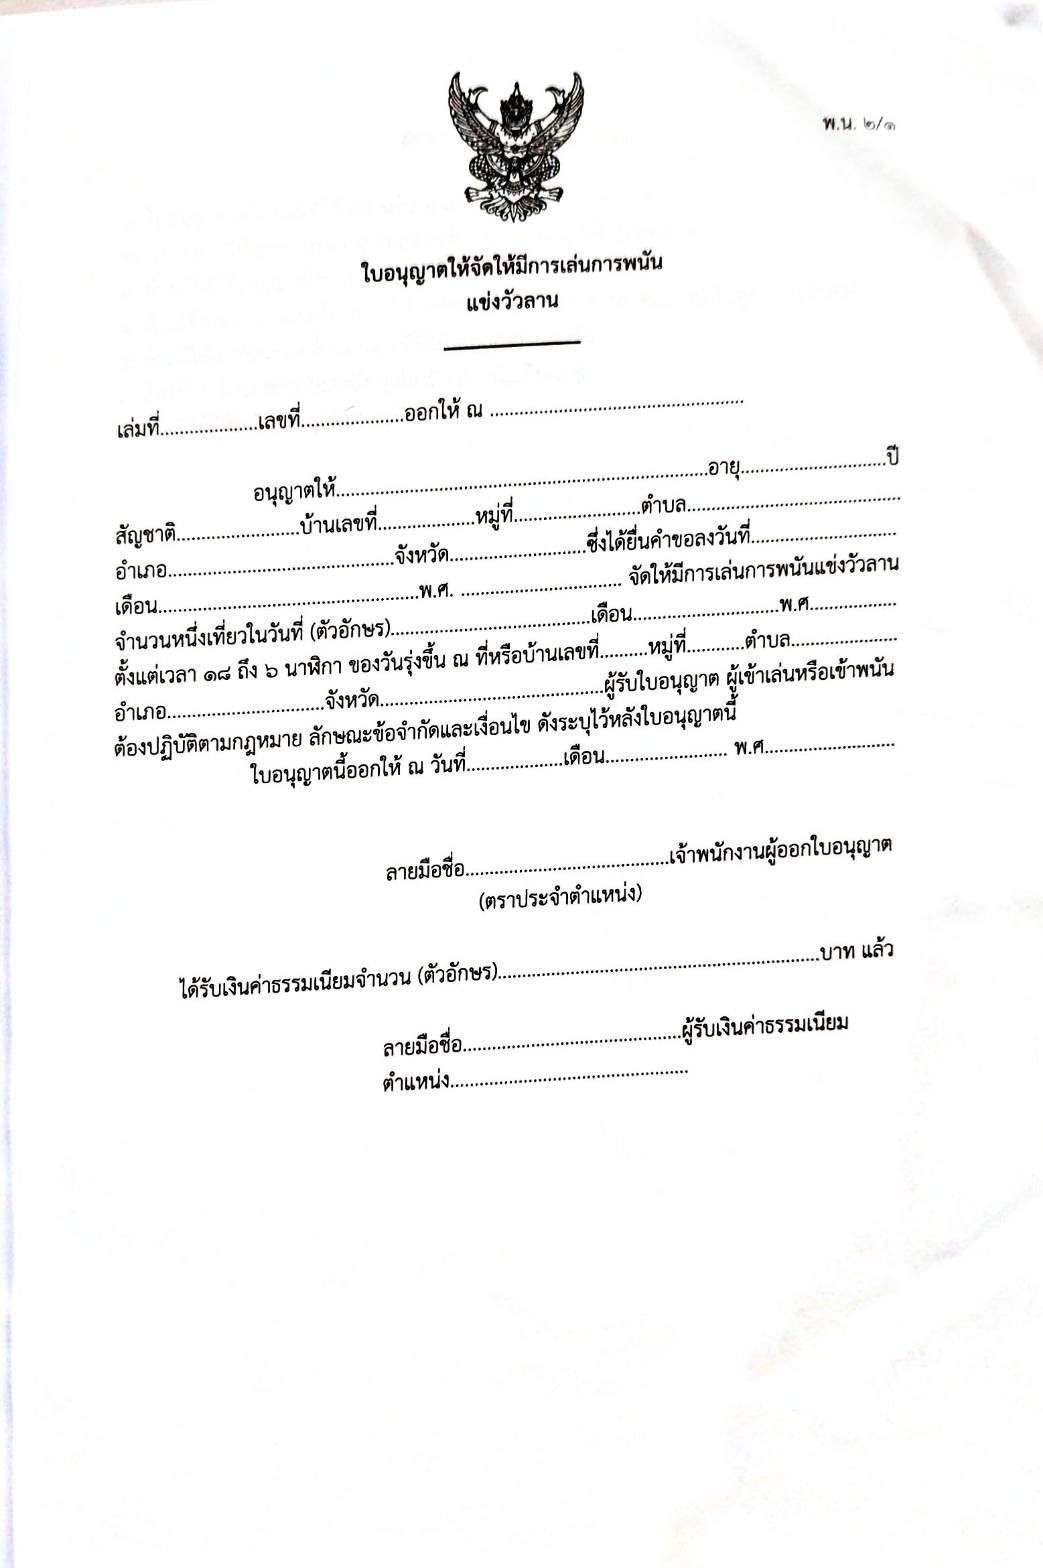 พ.น. ๒/๑
ใบอนุญาตให้จัดให้มีการเล่นการพนัน
แข่งวัวลาน
เล่มที่....................เลขที่.....................ออกให้ ณ ....................................................
อนุญาตให้............................................................................อายุ..............................ปี
สัญชาติ.........................บ้านเลขที่....................หมู่ที่..........................ตำบล............................................
อำเภอ...............................................จังหวัด............................ซึ่งได้ยื่นคำขอลงวันที่..............................
เดือน......................................................พ.ศ. ................................. จัดให้มีการเล่นการพนันแข่งวัวลาน
จำนวนหนึ่งเที่ยวในวันที่ (ตัวอักษร).........................................เดือน..............................พ.ศ..................
ตั้งแต่เวลา ๑๘ ถึง ๖ นาฬิกา ของวันรุ่งขึ้น ณ ที่หรือบ้านเลขที่..........หมู่ที่............ตำบล......................
อำเภอ.................................จังหวัด..............................................ผู้รับใบอนุญาต ผู้เข้าเล่นหรือเข้าพนัน
ต้องปฏิบัติตามกฎหมาย ลักษณะข้อจำกัดและเงื่อนไข ดังระบุไว้หลังใบอนุญาตนี้
ใบอนุญาตนี้ออกให้ ณ วันที่....................เดือน......................... พ.ศ...........................
ลายมือชื่อ..........................................เจ้าพนักงานผู้ออกใบอนุญาต
(ตราประจำตำแหน่ง)
ได้รับเงินค่าธรรมเนียมจำนวน (ตัวอักษร)..................................................................บาท แล้ว
ลายมือชื่อ.............................................ผู้รับเงินค่าธรรมเนียม
ตำแหน่ง.................................................